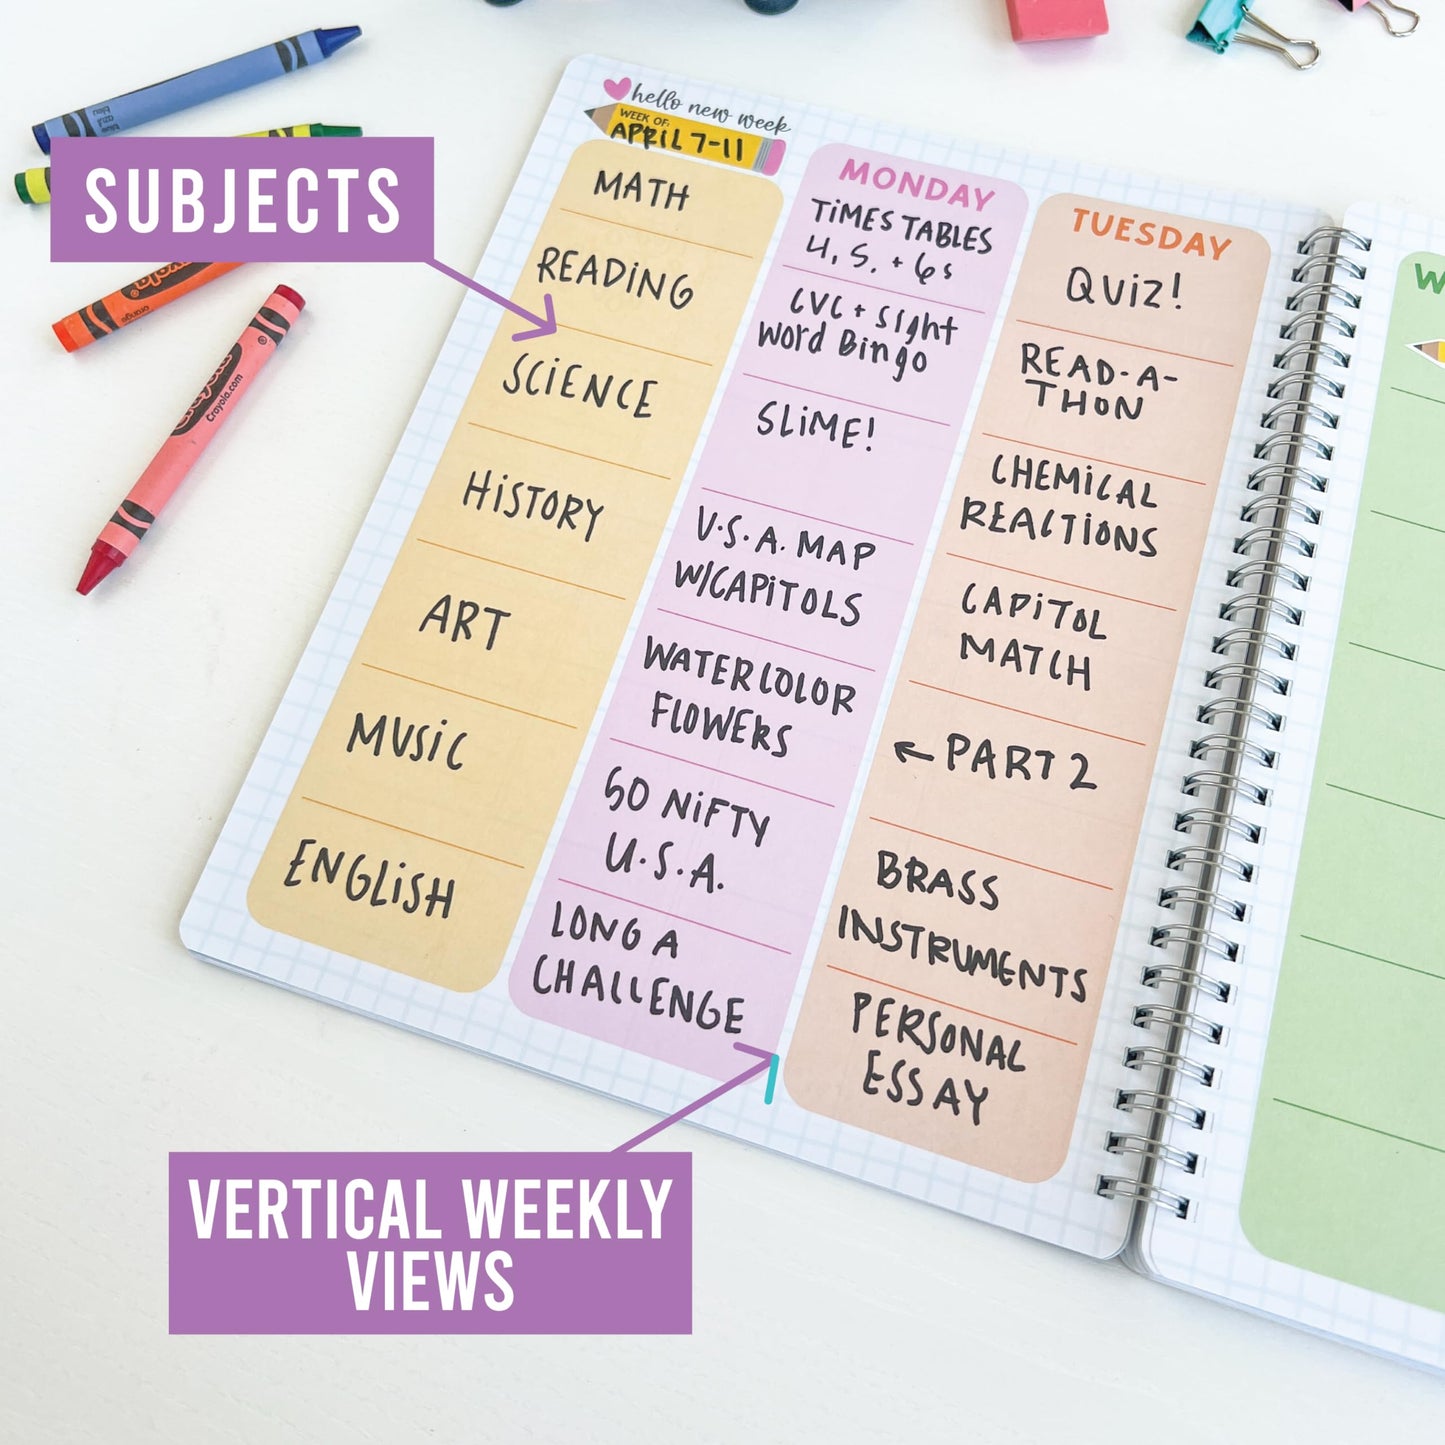 hello new week
WEEK OF:
APRIL 7-11
SUBJECTS
MATH
READING
SCIENCE
HISTORY
ART
MUSIC
ENGLISH
MONDAY
TIMES TABLES
4, 5, + 6s
CVC + Sight
Word Bingo
SLIME!
U.S.A. MAP
W/CAPITOLS
WATERCOLOR
FLOWERS
50 NIFTY
U.S.A.
LONG A
CHALLENGE
TUESDAY
QUIZ!
READ-A-
THON
CHEMICAL
REACTIONS
CAPITOL
MATCH
← PART 2
BRASS
INSTRUMENTS
PERSONAL
ESSAY
W
VERTICAL WEEKLY
VIEWS
blue
azul
bleu
orange
Crayola.com